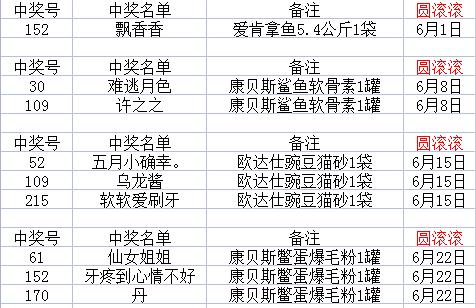 中奖号 中奖名单 备注 圆滚滚
152 飘香香 爱肯拿鱼5.4公斤1袋 6月1日
中奖号 中奖名单 备注 圆滚滚
30 难逃月色 康贝斯鲨鱼软骨素1罐 6月8日
109 许之之 康贝斯鲨鱼软骨素1罐 6月8日
中奖号 中奖名单 备注 圆滚滚
52 五月小确幸。 欧达仕豌豆猫砂1袋 6月15日
109 乌龙酱 欧达仕豌豆猫砂1袋 6月15日
215 软软爱刷牙 欧达仕豌豆猫砂1袋 6月15日
中奖号 中奖名单 备注 圆滚滚
61 仙女姐姐 康贝斯鳖蛋爆毛粉1罐 6月22日
152 牙疼到心情不好 康贝斯鳖蛋爆毛粉1罐 6月22日
170 丹 康贝斯鳖蛋爆毛粉1罐 6月22日